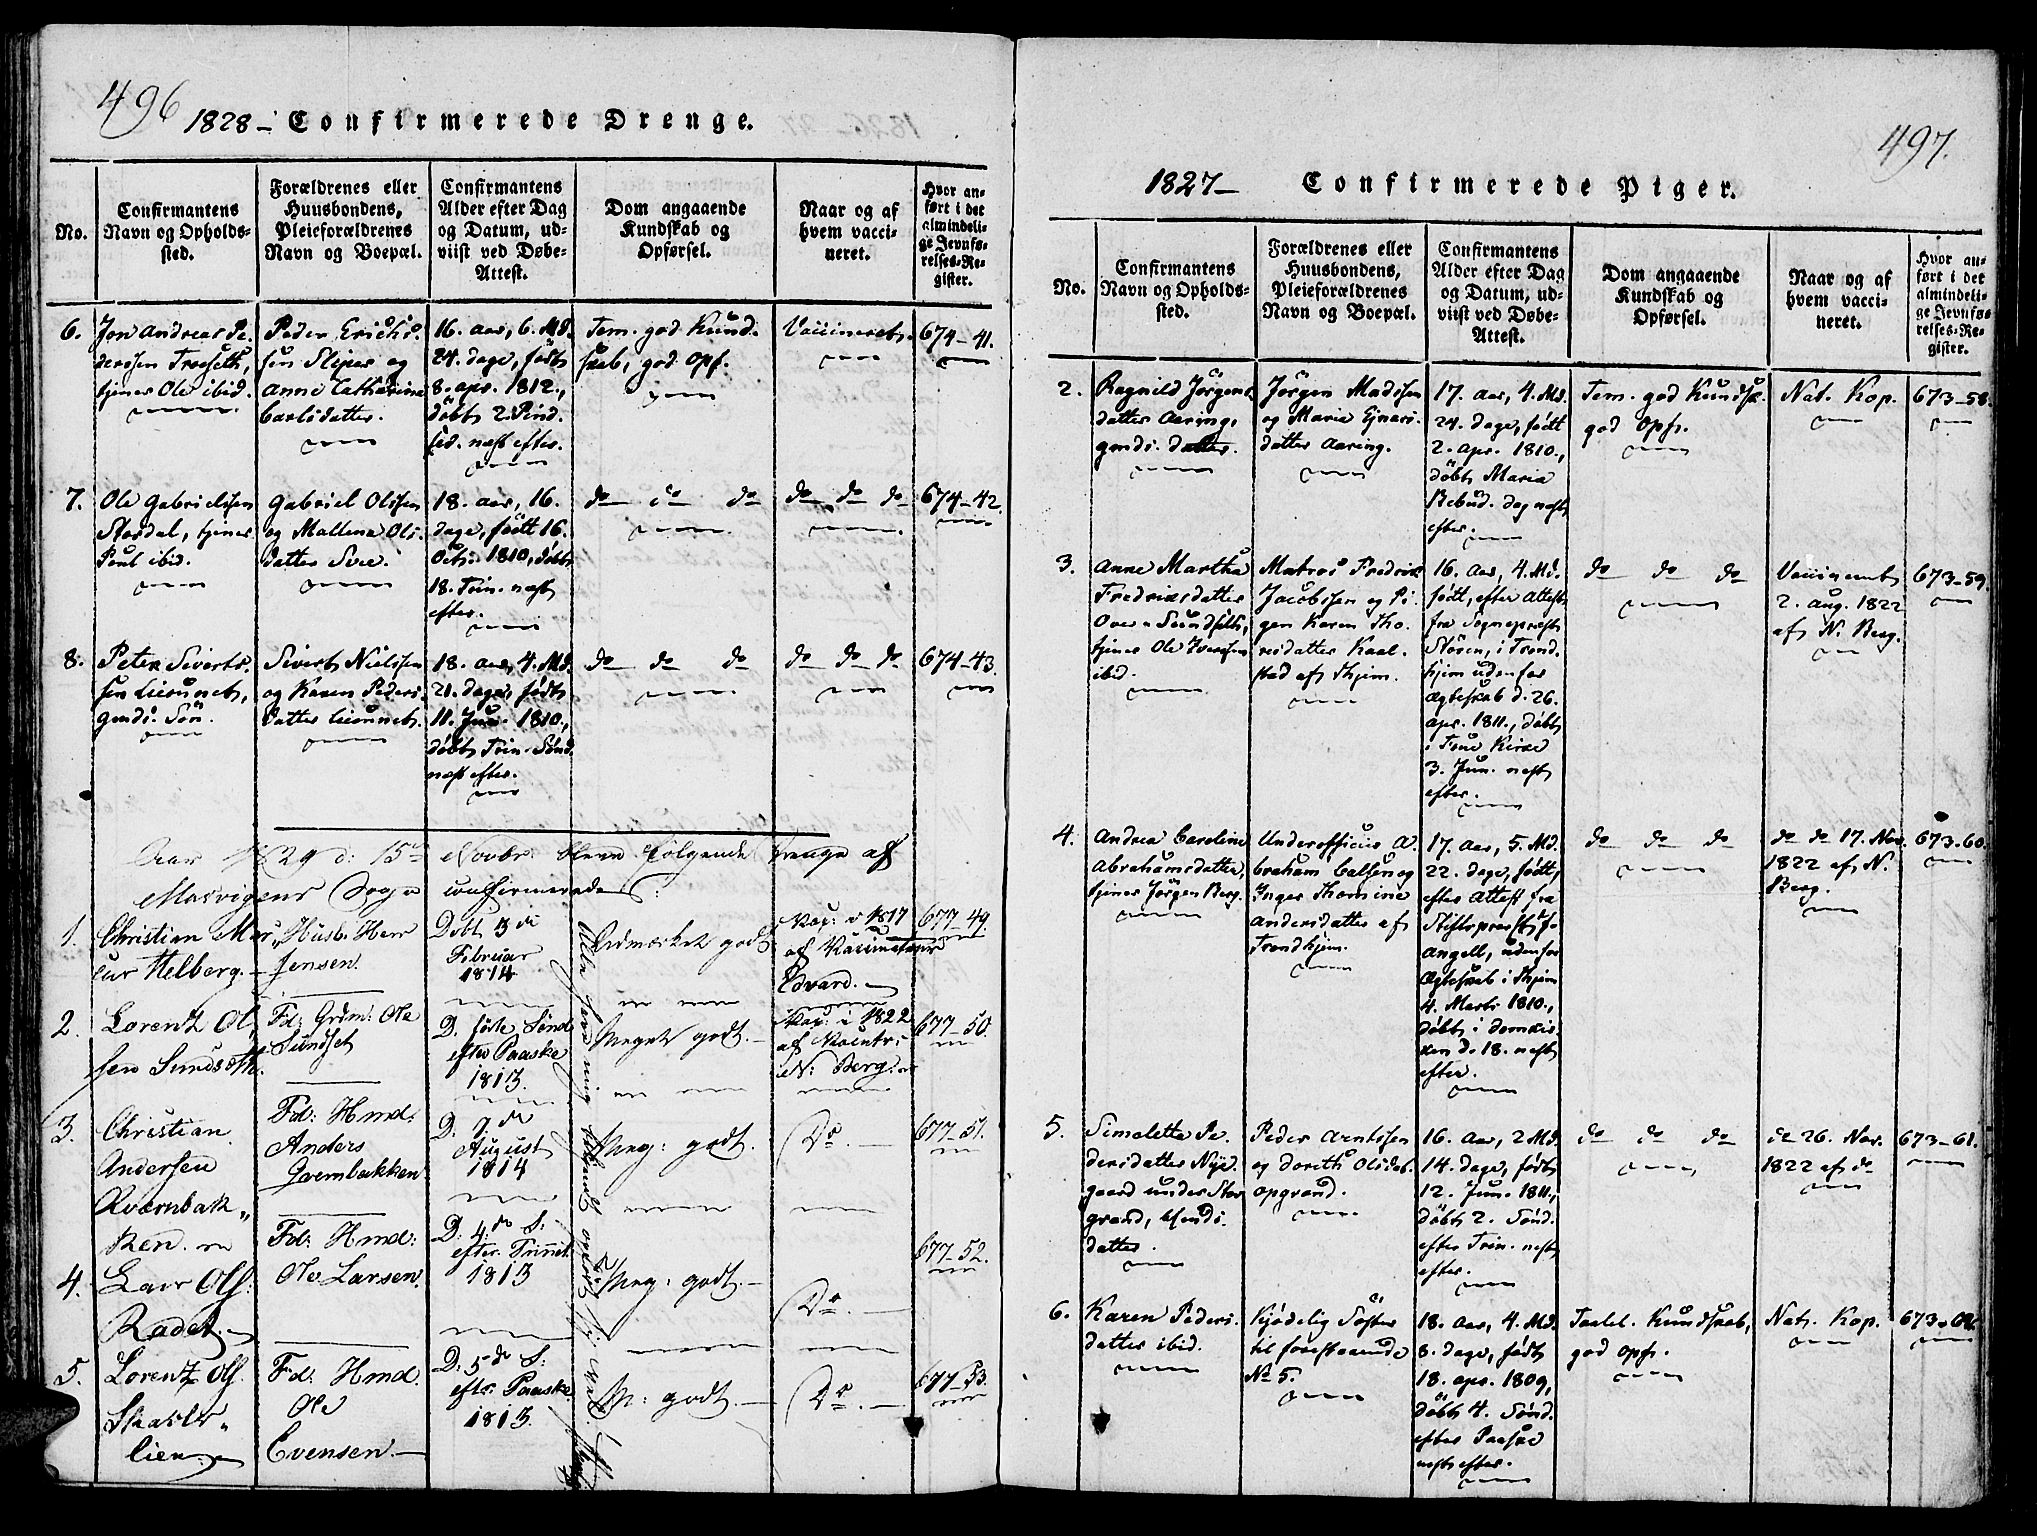 496
1828 — Confirmerede Drenge.
No.
Confirmantens
Navn og Opholds-
sted.
Forældrenes eller
Huusbondens,
Pleieforældrenes
Navn og Boepæl.
Confirmantens
Alder efter Dag
og Datum, ud-
viist ved Døbe-
Attest.
Dom angaaende
Kundskab og
Opførsel.
Naar og af
hvem vacci-
neret.
Hvor an-
ført i det
almindeli-
ge Jevnfø-
relses-Re-
gister.
6.
Jon Andreas Pe-
derssen Troeseth,
tjener Ole ibid.
Peder Erichs-
sen Sliper og
Anne Catharina
Carlsdatter.
16. Aar, 6. Md.
24. dage, født
8. apr. 1812.,
döbt 2. Pind.
næst efter.
Tem. god Kund-
skab, god Opf.
Vaccineret.
674-41.
7.
Ole Gabrielssen
Stordal, tjener
Poul ibid.
Gabriel Olssen
og Mallena Ols-
datter Svee.
18. aar, 16.
dage, født 16.
Oct: 1810, döbt
18. Trin. næst
efter.
do do do
do do do
674-42.
8.
Peter Siverts-
sen Liesunet,
gmds. Sön.
Sivert Nielssen
og Karen Peders-
datter Liesunet.
18. aar, 4. Md.
21. dage, født
11. Jun. 1810.,
döbt Trin. Sönd.
næst efter.
do do do
do do do
674-43.
Aar 1829 d: 15de Novbr: bleve følgende Drenge af
Mosvigens Sogn confirmerede:
1.
Christian Mar-
cus Helberg.
Husb: Herr
Jensen.
Dobt 3de
Februar
1814
Udmærket godt
Vax: i 1817
af Vaccinateur
Edvard.
677-49.
2.
Lorenz Ol-
sen Sundseth.
Fd: Grdm: Ole
Sundset
D. sidste Sönd
efter Paaske
1813.
Meget godt.
Vax: i 1822
af
N: Berg.
677-50.
3.
Christian
Andersen
Kvernbak-
ken.
Fd: Hmd:
Anders
Qvernbakken
D. 7de
August
1814
Meg: godt.
Do.
677-51.
4.
Lars Ols:
Radet.
Fd: Hmd:
Ole Larsen.
D: 4de S:
efter Trinit.
1813
Meg: godt.
Do.
677-52.
5.
Lorentz Ols.
lien.
Fd. Hmd.
Ole
Evensen.
D: 5de S:
eftr. Paaske
1813.
M: godt.
Do.
677-53.
497.
1827 — Confirmerede Piger.
No.
Confirmantens
Navn og Opholds-
sted.
Forældrenes eller
Huusbondens,
Pleieforældrenes
Navn og Boepæl.
Confirmantens
Alder efter Dag
og Datum, ud-
viist ved Døbe-
Attest.
Dom angaaende
Kundskab og
Opførsel.
Naar og af
hvem vacci-
neret.
Hvor an-
ført i det
almindeli-
ge Jevnfø-
relses-Re-
gister.
2.
Ragnild Jörgens-
datter Aaring,
gmds: datter.
Jörgen Madssen
og Maria Ejnars-
datter Aaring.
17. aar, 4. Md.
24. dage, født
2. apr. 1810.,
döbt Maria
Bebud. dag næst
efter.
Tem. god Kundsk.
god Opf.
Nat. Kop.
673-58.
3.
Anne Martha
Fredriksdatter
Over-Sundseth,
tjener Ole Iverssen
ibid.
Matros Fredrik
Jacobssen og Pi-
gen Karen Tho-
resdatter Kaal-
stad af Thjem.
16. Aar, 4. Md.
født, efter Attest
fra Sognepræst
Stören, i Trond-
hjem udenfor
Ægteskab d. 26.
apr. 1811., döbt
i Frue Kirke
3. Jun. næst
efter.
do do do
Vaccineret
2. Aug. 1822
af N. Berg.
673-59.
4.
Andrea Caroline
Abrahamsdatter,
tjener Jörgen Berg.
Underofficeer A-
braham Calsen og
Inger Thomine
Andersdatter af
Trondhjem.
17. aar, 5. Md.
22. dage, født,
efter Attest fra
Stiftsprovst
Angell, udenfor
Ægteskab i Thjem
4. Marts 1810.,
döbt i domkir-
ken d. 18. næst
efter.
do do do
do do 17. Nov.
1822 af N.
Berg.
673-60.
5.
Simelette Pe-
dersdatter Nye-
gaard under Stor-
grand, Hmds.
datter.
Peder Arntssen
og Doreth Olsdat.
Opgrand.
16. Aar, 2 Md.
14. dage, født
12. Jun. 1811.,
döbt 2. Sönd.
efter Trin. næst
efter.
do do do
do 26. Nov.
1822 af do
673-61.
6.
Karen Peders-
datter ibid.
Kjödelig Söster
til forestaaende
No 5.
18. Aar, 4. Md.
8. dage, født
18. apr. 1809,
döbt 4. Sönd.
efter Paaske
næst efter.
Taalel. Kundskab,
god Opf.
Nat. Kop.
673-62.